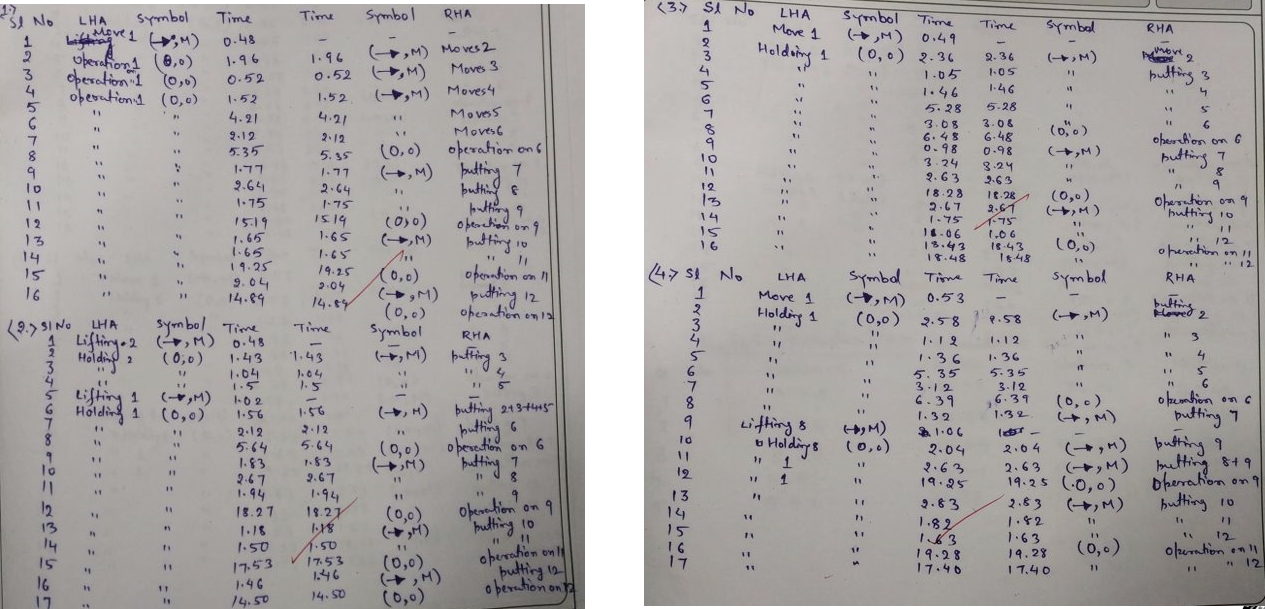 1.> Sl No LHA Symbol Time Time Symbol RHA
1 Move 1 (→, M) 0.48 - - -
2 Operation 1 (0,0) 1.96 1.96 (→, M) Moves 2
3 Operation 1 (0,0) 0.52 0.52 (→, M) Moves 3
4 Operation 1 (0,0) 1.52 1.52 (→, M) Moves 4
5 " " 4.21 4.21 " Moves 5
6 " " 2.12 2.12 " Moves 6
7 " " 5.35 5.35 (0,0) operation on 6
8 " " 1.77 1.77 (→, M) putting 7
9 " " 2.64 2.64 " putting 8
10 " " 1.75 1.75 " putting 9
11 " " 15.19 15.19 (0,0) operation on 9
12 " " 1.65 1.65 (→, M) putting 10
13 " " 1.65 1.65 " " 11
14 " " 19.25 19.25 (0,0) operation on 11
15 " " 2.04 2.04 (→, M) putting 12
16 " " 14.89 14.89 (0,0) operation on 12
<2.> Sl No LHA Symbol Time Time Symbol RHA
1 Lifting 2 (→, M) 0.48 - - -
2 Holding 2 (0,0) 1.43 1.43 (→, M) putting 3
3 " " 1.04 1.04 " " 4
4 " " 1.5 1.5 " " 5
5 Lifting 1 (→, M) 1.02 - - -
6 Holding 1 (0,0) 1.56 1.56 (→, M) putting 2+3+4+5
7 " " 2.12 2.12 " putting 6
8 " " 5.64 5.64 (0,0) operation on 6
9 " " 1.83 1.83 (→, M) putting 7
10 " " 2.67 2.67 " " 8
11 " " 1.94 1.94 " " 9
12 " " 18.27 18.27 (0,0) operation on 9
13 " " 1.18 1.18 (→, M) putting 10
14 " " 1.50 1.50 " " 11
15 " " 17.53 17.53 (0,0) operation on 11
16 " " 1.46 1.46 (→, M) putting 12
17 " " 14.50 14.50 (0,0) operation on 12
<3.> Sl No LHA Symbol Time Time Symbol RHA
1 Move 1 (→, M) 0.49 - - -
2 Holding 1 (0,0) 2.36 2.36 (→, M) move 2
3 " " 1.05 1.05 " putting 3
4 " " 1.46 1.46 " " 4
5 " " 5.28 5.28 " " 5
6 " " 3.08 3.08 " " 6
7 " " 6.48 6.48 (0,0) operation on 6
8 " " 0.98 0.98 (→, M) putting 7
9 " " 3.24 3.24 " " 8
10 " " 2.63 2.63 " " 9
11 " " 18.28 18.28 (0,0) operation on 9
12 " " 2.67 2.67 (→, M) putting 10
13 " " 1.75 1.75 " " 11
14 " " 1.06 " " 12
15 " " 18.43 18.43 (0,0) operation on 11
16 " " 18.48 18.48 " " 12
<4.> Sl No LHA Symbol Time Time Symbol RHA
1 Move 1 (→, M) 0.53 - - -
2 Holding 1 (0,0) 2.58 2.58 (→, M) putting 2
3 " " 1.12 1.12 " " 3
4 " " 1.36 1.36 " " 4
5 " " 5.35 5.35 " " 5
6 " " 3.12 3.12 " " 6
7 " " 6.39 6.39 (0,0) operation on 6
8 " " 1.32 1.32 (→, M) putting 7
9 Lifting 8 (→, M) 1.06 - - -
10 Holding 8 (0,0) 2.04 2.04 (→, M) putting 9
11 " 1 " 2.63 2.63 (→, M) putting 8+9
12 " 1 " 19.25 19.25 (0,0) Operation on 9
13 " " 2.83 2.83 (→, M) putting 10
14 " " 1.82 1.82 " " 11
15 " " 1.63 1.63 " " 12
16 " " 19.28 19.28 (0,0) operation on 11
17 " " 17.40 17.40 " " 12